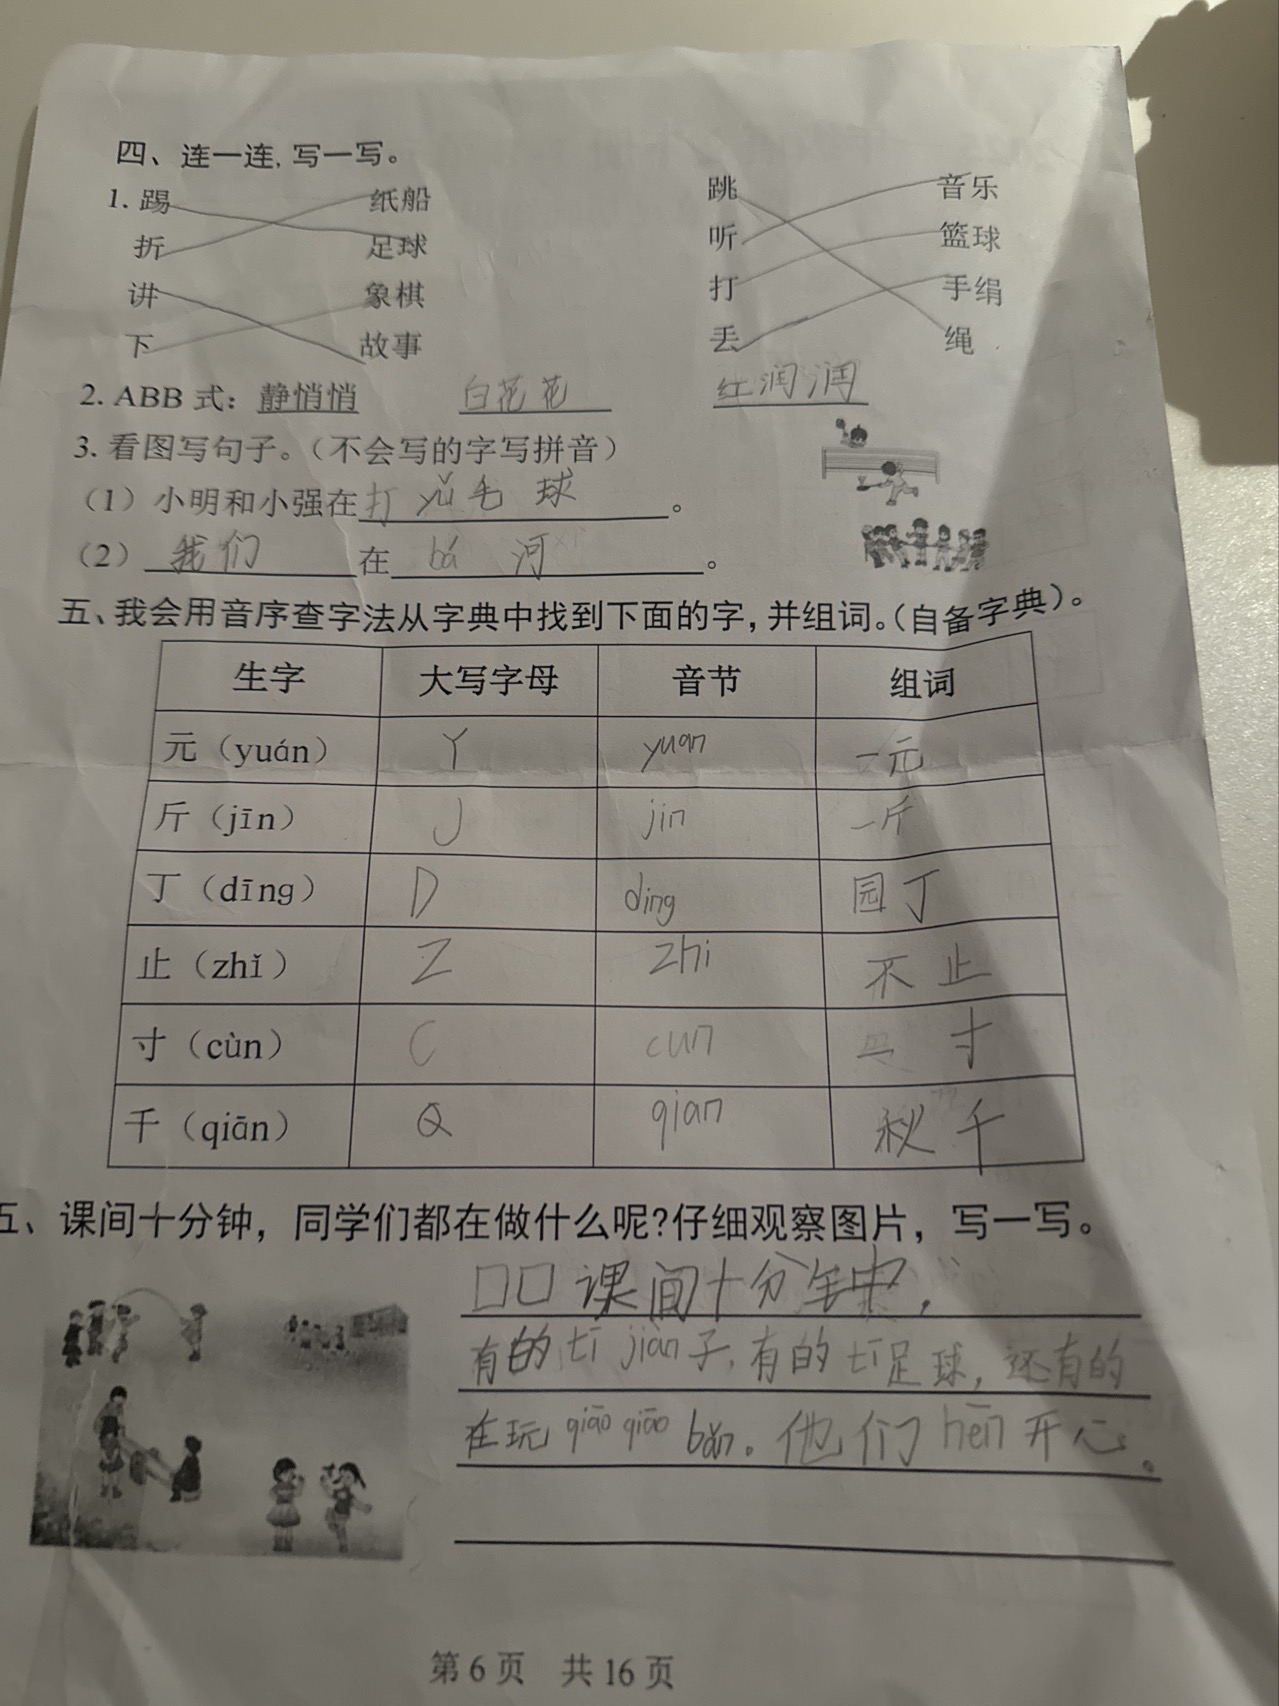 四、连一连,写一写。
1. 踢 纸船 跳 音乐
折 足球 听 篮球
讲 象棋 打 手绢
下 故事 丢 绳
2. ABB 式：静悄悄 白花花 红润润
3. 看图写句子。（不会写的字写拼音）
（1）小明和小强在打 yǔ 毛 球。
（2）我们在 bá 河。
五、我会用音序查字法从字典中找到下面的字，并组词。（自备字典）。
生字 大写字母 音节 组词
元（yuán） Y yuan 一元
斤（jīn） J jin 一斤
丁（dīng） D ding 园丁
止（zhǐ） Z zhi 不止
寸（cùn） C cun 寸
千（qiān） Q qian 秋千
五、课间十分钟，同学们都在做什么呢?仔细观察图片，写一写。
口口课间十分钟，
有的 tī jiàn 子，有的 tī 足球，还有的
在玩 qiāo qiāo bǎn。他们 hěn 开心。
第 6 页 共 16 页